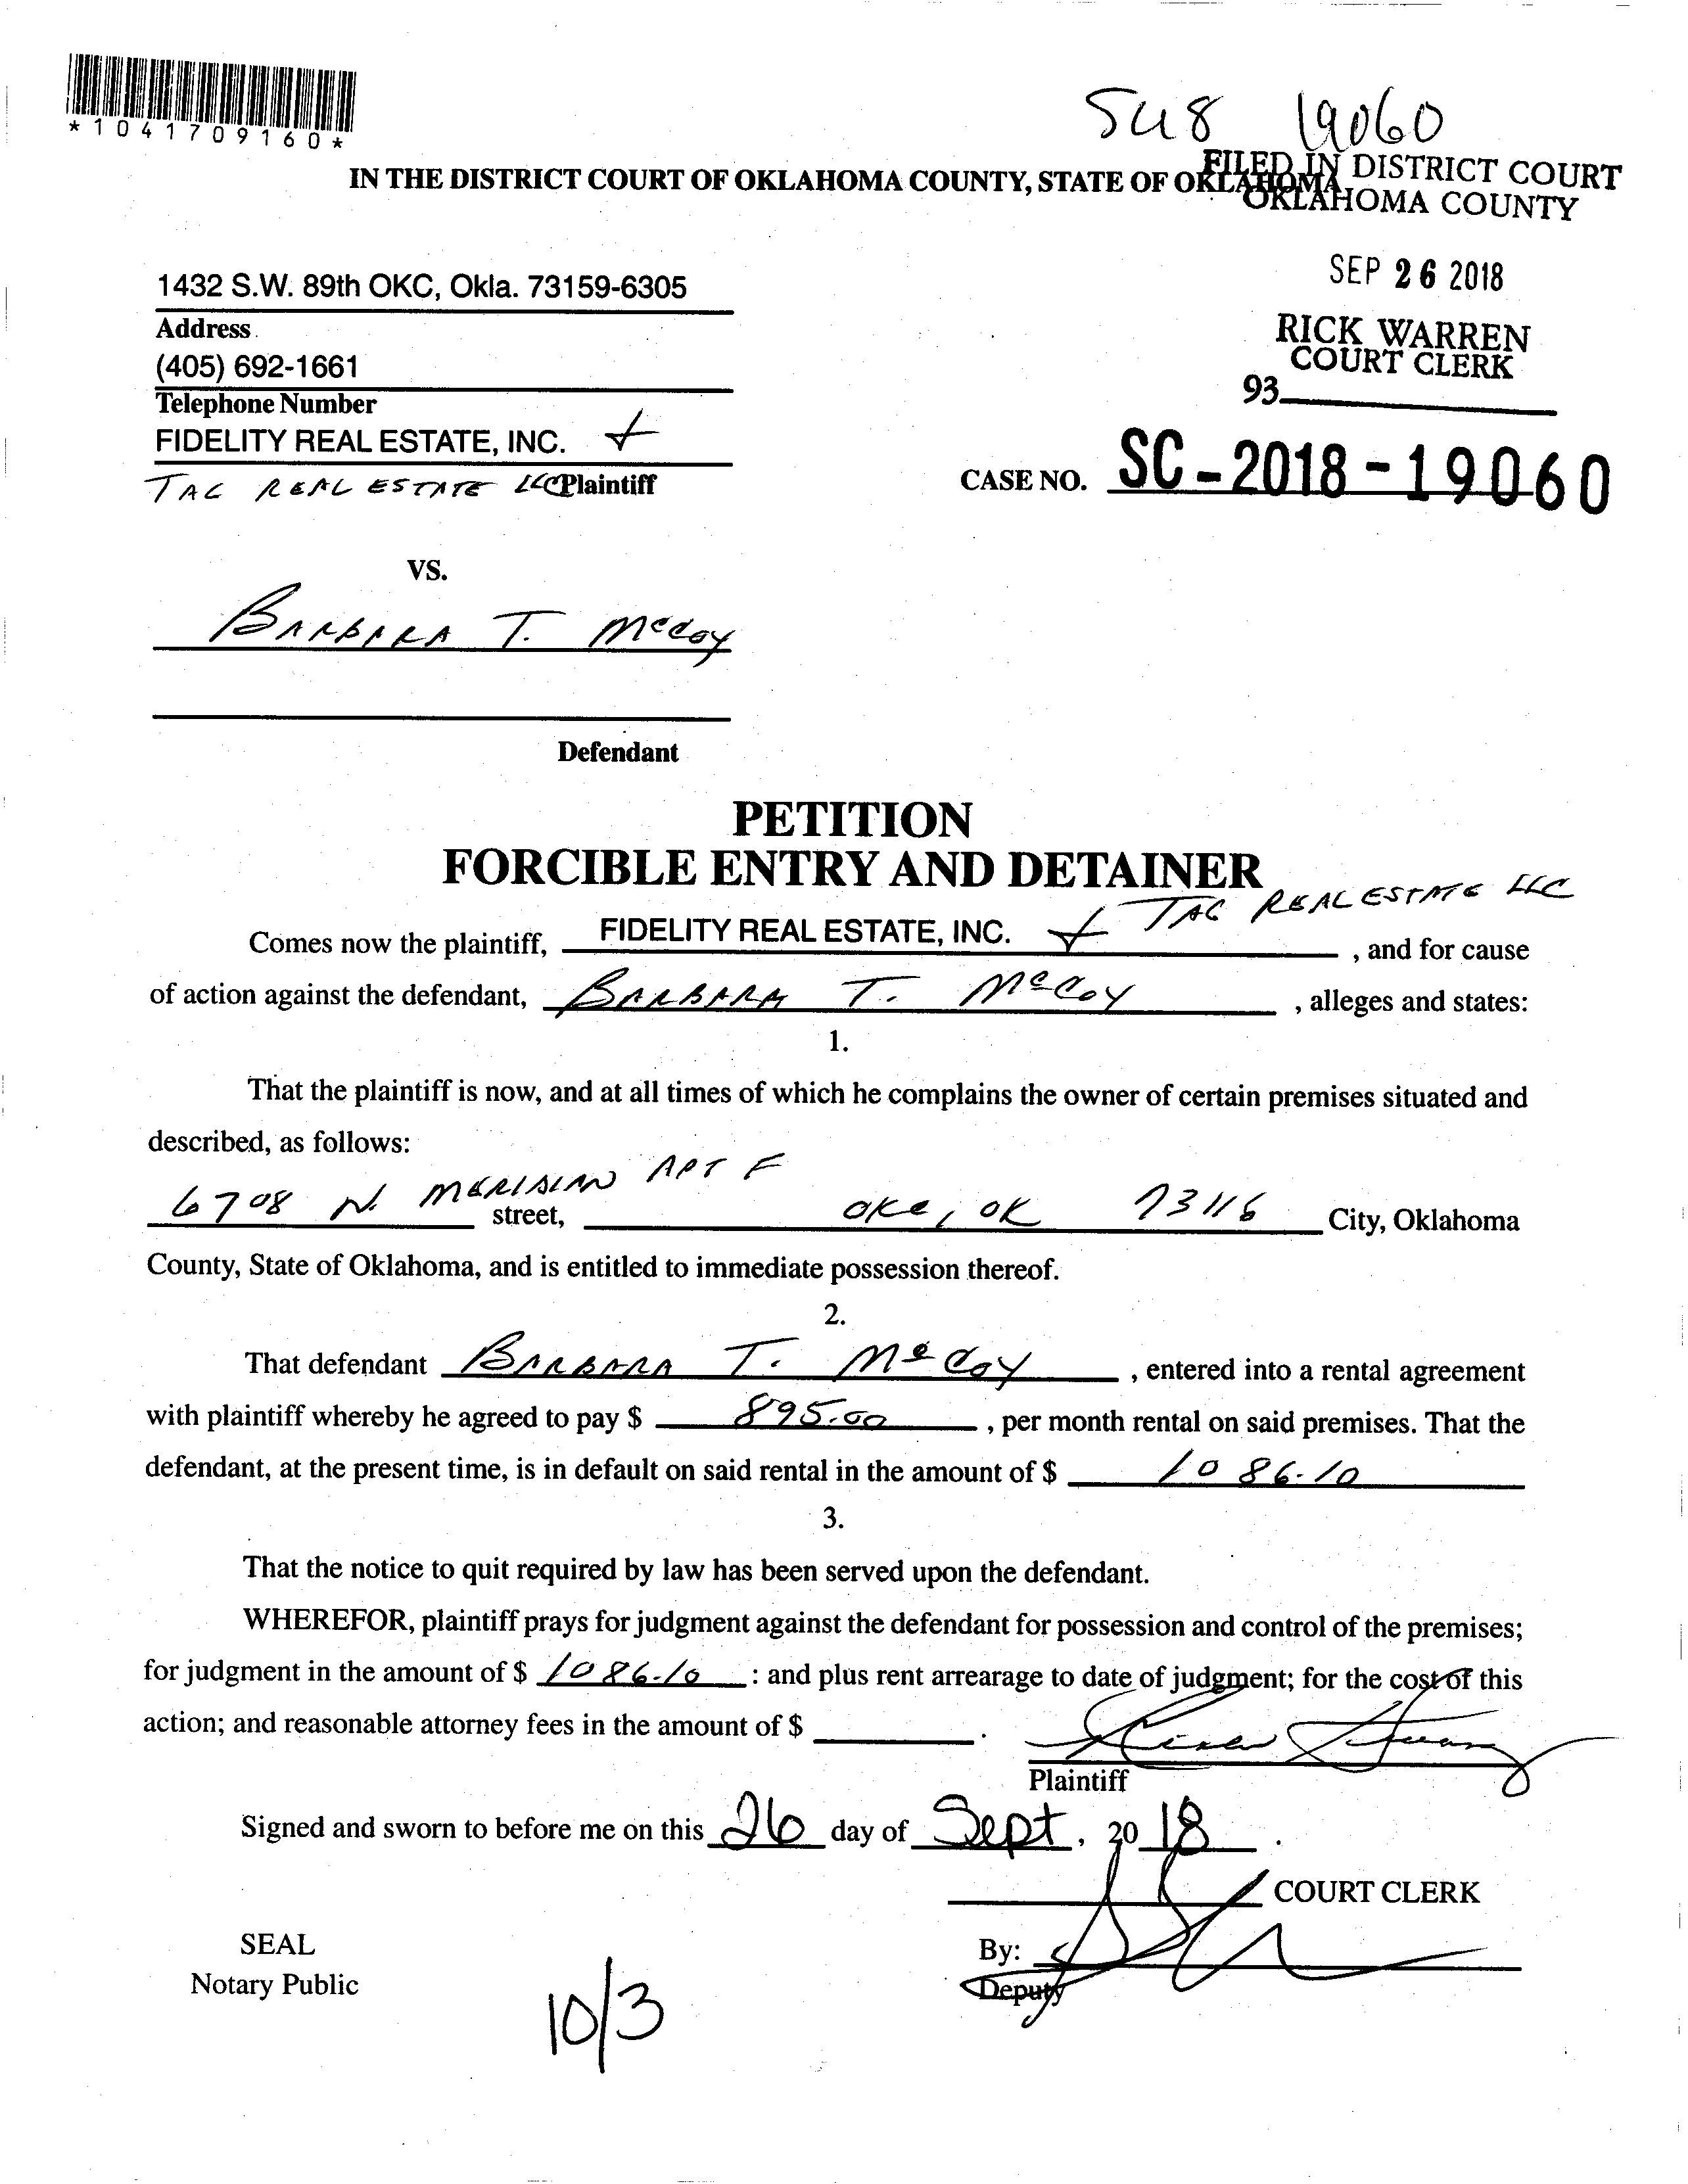 *1041709160*
19060
IN THE DISTRICT COURT OF OKLAHOMA COUNTY, STATE OF OKLAHOMA
FILED IN DISTRICT COURT
OKLAHOMA COUNTY
SEP 26 2018
RICK WARREN
COURT CLERK
93
1432 S.W. 89th OKC, Okla. 73159-6305
Address
(405) 692-1661
Telephone Number
FIDELITY REAL ESTATE, INC. +
TAC REAL ESTATE LLC Plaintiff
CASE NO. SC-2018-19060
VS.
BARBARA T. McCoy
Defendant
PETITION
FORCIBLE ENTRY AND DETAINER
Comes now the plaintiff, FIDELITY REAL ESTATE, INC. + TAC REAL ESTATE LLC, and for cause
of action against the defendant, BARBARA T. McCoy, alleges and states:
1.
That the plaintiff is now, and at all times of which he complains the owner of certain premises situated and
described, as follows:
6708 N. MERIDIAN APT F street, OKC, OK 73116 City, Oklahoma
County, State of Oklahoma, and is entitled to immediate possession thereof.
2.
That defendant BARBARA T. McCoy, entered into a rental agreement
with plaintiff whereby he agreed to pay $ 895.00, per month rental on said premises. That the
defendant, at the present time, is in default on said rental in the amount of $ 1086.10
3.
That the notice to quit required by law has been served upon the defendant.
WHEREFOR, plaintiff prays for judgment against the defendant for possession and control of the premises;
for judgment in the amount of $ 1086.10 : and plus rent arrearage to date of judgment; for the cost of this
action; and reasonable attorney fees in the amount of $ .
Plaintiff
Signed and sworn to before me on this 26 day of Sept, 20 18.
COURT CLERK
SEAL
By:
Notary Public
Deputy
10/3